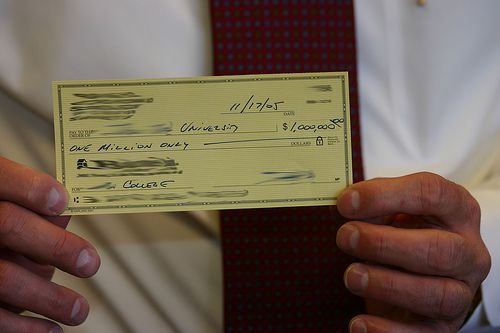 11/17/05
DATE
PAY TO THE
ORDER OF University $ 1,000,000.00
ONE MILLION ONLY DOLLARS
FOR COLLEGE